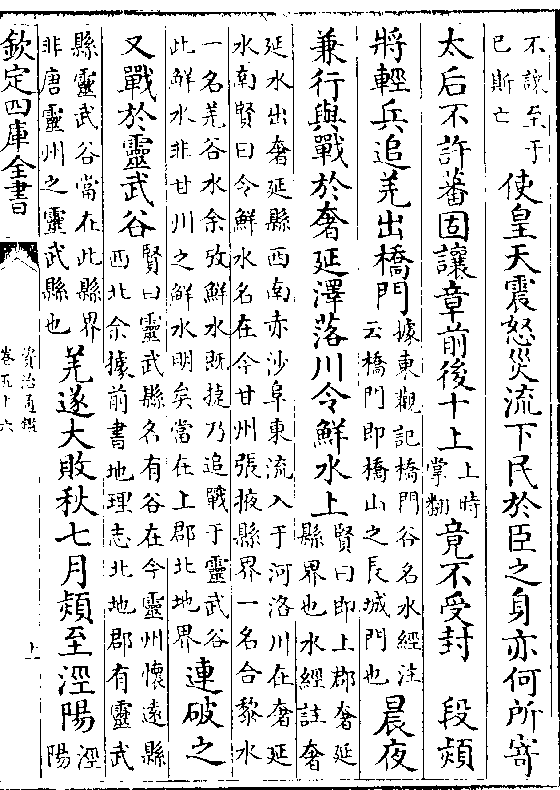 不讓至于
已斯亡
使皇天震怒災流下民於臣之身亦何所寄
太后不許蕃固讓章前後十上
上時
掌翻
竟不受封　段熲
將輕兵追羌出橋門
據東觀記橋門谷名水經注
云橋門即橋山之長城門也
晨夜
兼行與戰於奢延澤落川令鮮水上
賢曰即上郡奢延
縣界也水經註奢
延水出奢延縣西南赤沙阜東流入于河洛川在奢延
水南賢曰令鮮水名在今甘州張掖縣界一名合黎水
一名羌谷水余攷鮮水既捷乃追戰于靈武谷
此鮮水非甘川之鮮水明矣當在上郡北地界
連破之
又戰於靈武谷
賢曰靈武縣名有谷在今靈州懷遠縣
西北余據前書地理志北地郡有靈武
縣靈武谷當在此縣界
非唐靈州之靈武縣也
羌遂大敗秋七月熲至涇陽
涇
陽
欽定四庫全書
資治通鑑
卷五十六
上